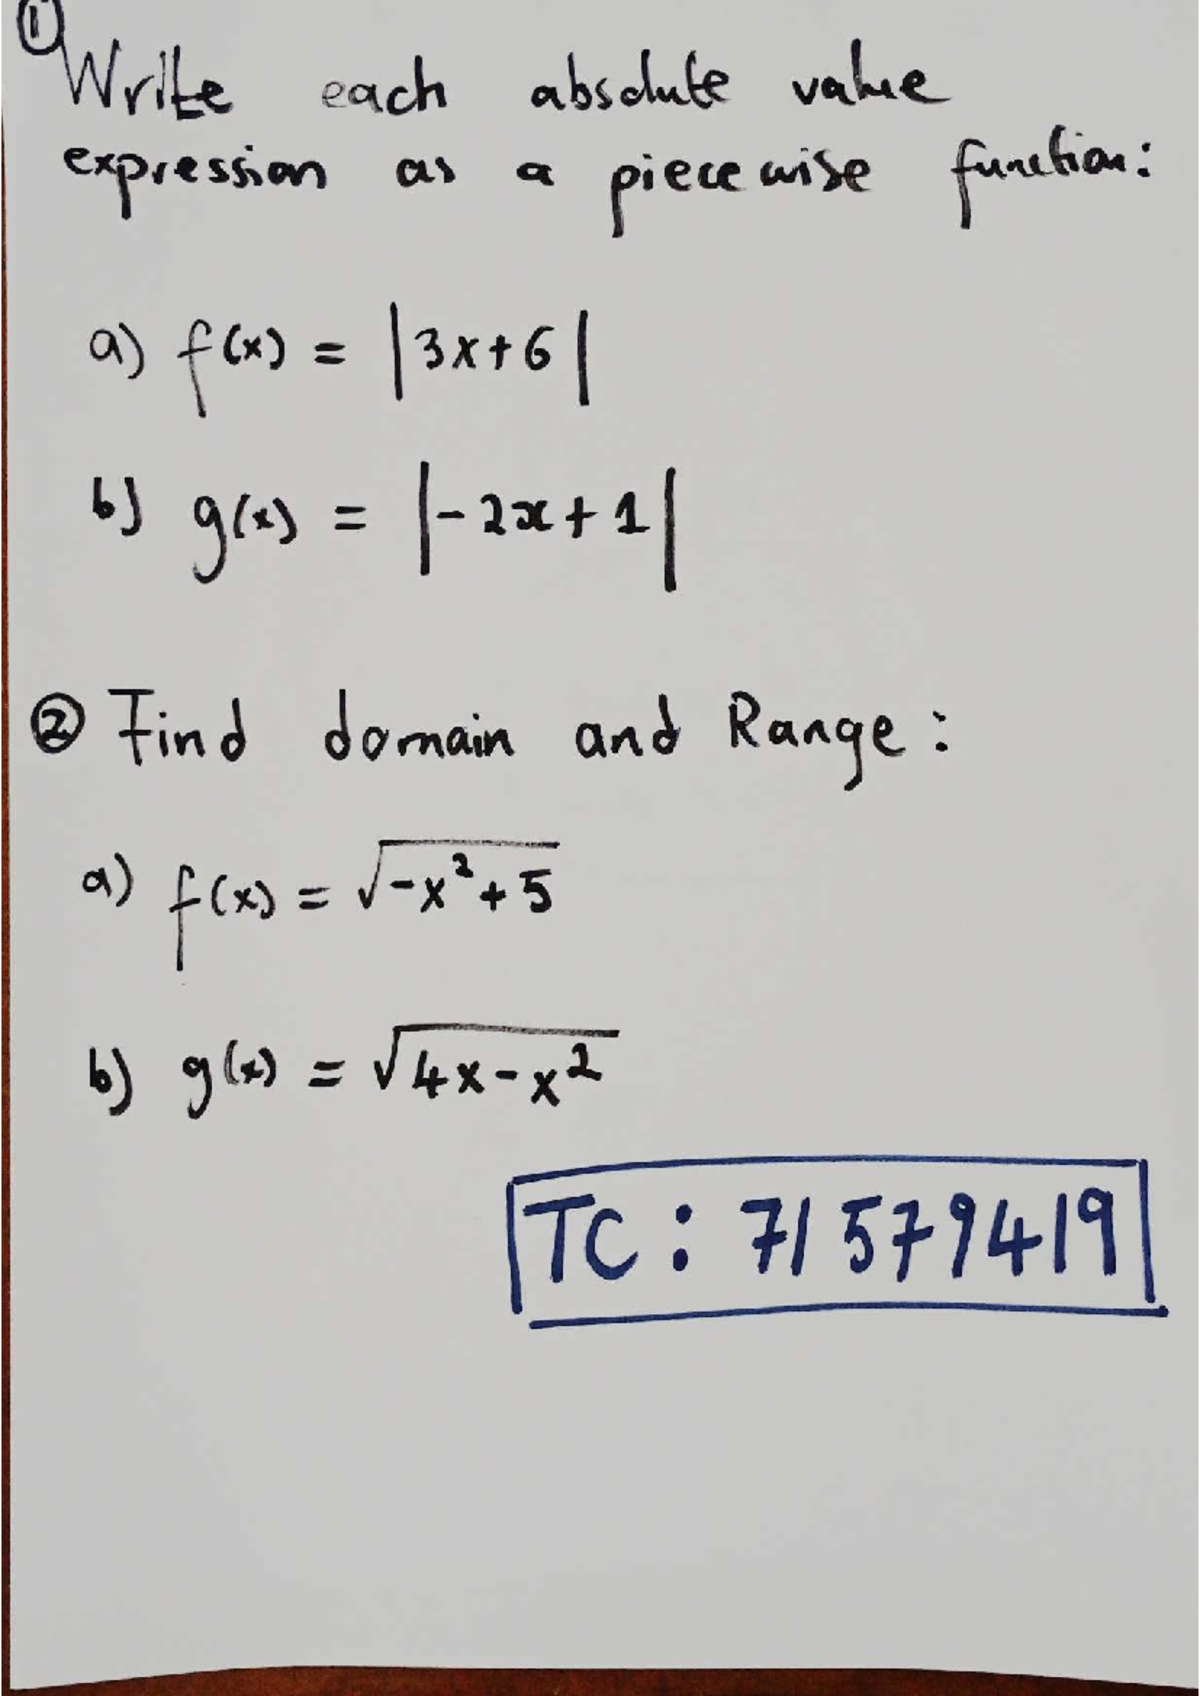 ① Write each absolute value
expression as a piecewise function:
a) f(x) = |3x+6|
b) g(x) = |-2x+1|
② Find domain and Range:
a) f(x) = √-x²+5
b) g(x) = √4x-x²
TC: 71579419